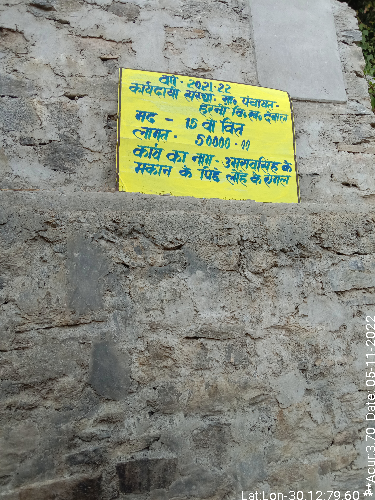 वर्ष - 2021-22
कार्यदायी संस्था - ग्रा० पंचायत -
हरनी वि.ख. देवाल
मद - 15 वां वित्त
लागत - 50000.00
कार्य का नाम - के
मकान के पिछे लोहे के
Lat:Lon-30.12:79.60
**Acur:3.70 Date: 05-11-2022